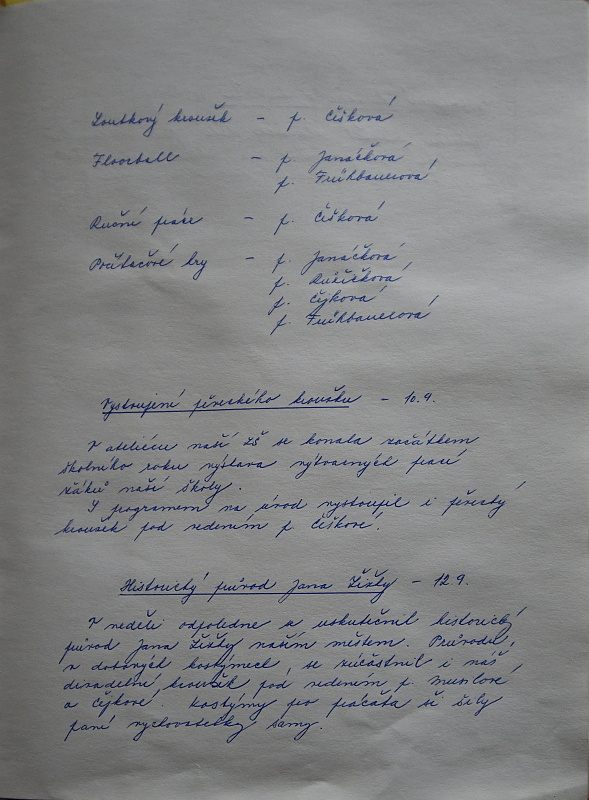 Loutkový kroužek - p. Čišková
Floorball - p. Janáčková
p. Frühbauerová
Ruční práce - p. Čišková
Počítačové hry - p. Janáčková
p. Růžičková
p. Čejková
p. Frühbauerová
Vystoupení pěveckého kroužku - 10.9.
V ateliéru naší ZŠ se konala začátkem
školního roku výstava výtvarných prací
žáků naší školy.
S programem na úvod vystoupil i pěvecký
kroužek pod vedením p. Čiškové.
Historický průvod Jana Žižky - 12.9.
V neděli odpoledne se uskutečnil historický
průvod Jana Žižky naším městem. Průvodu,
v dobových kostýmech, se zúčastnil i náš
divadelní kroužek pod vedením p.
a Čejkové. Kostýmy pro páčata si šily
paní vychovatelky samy.